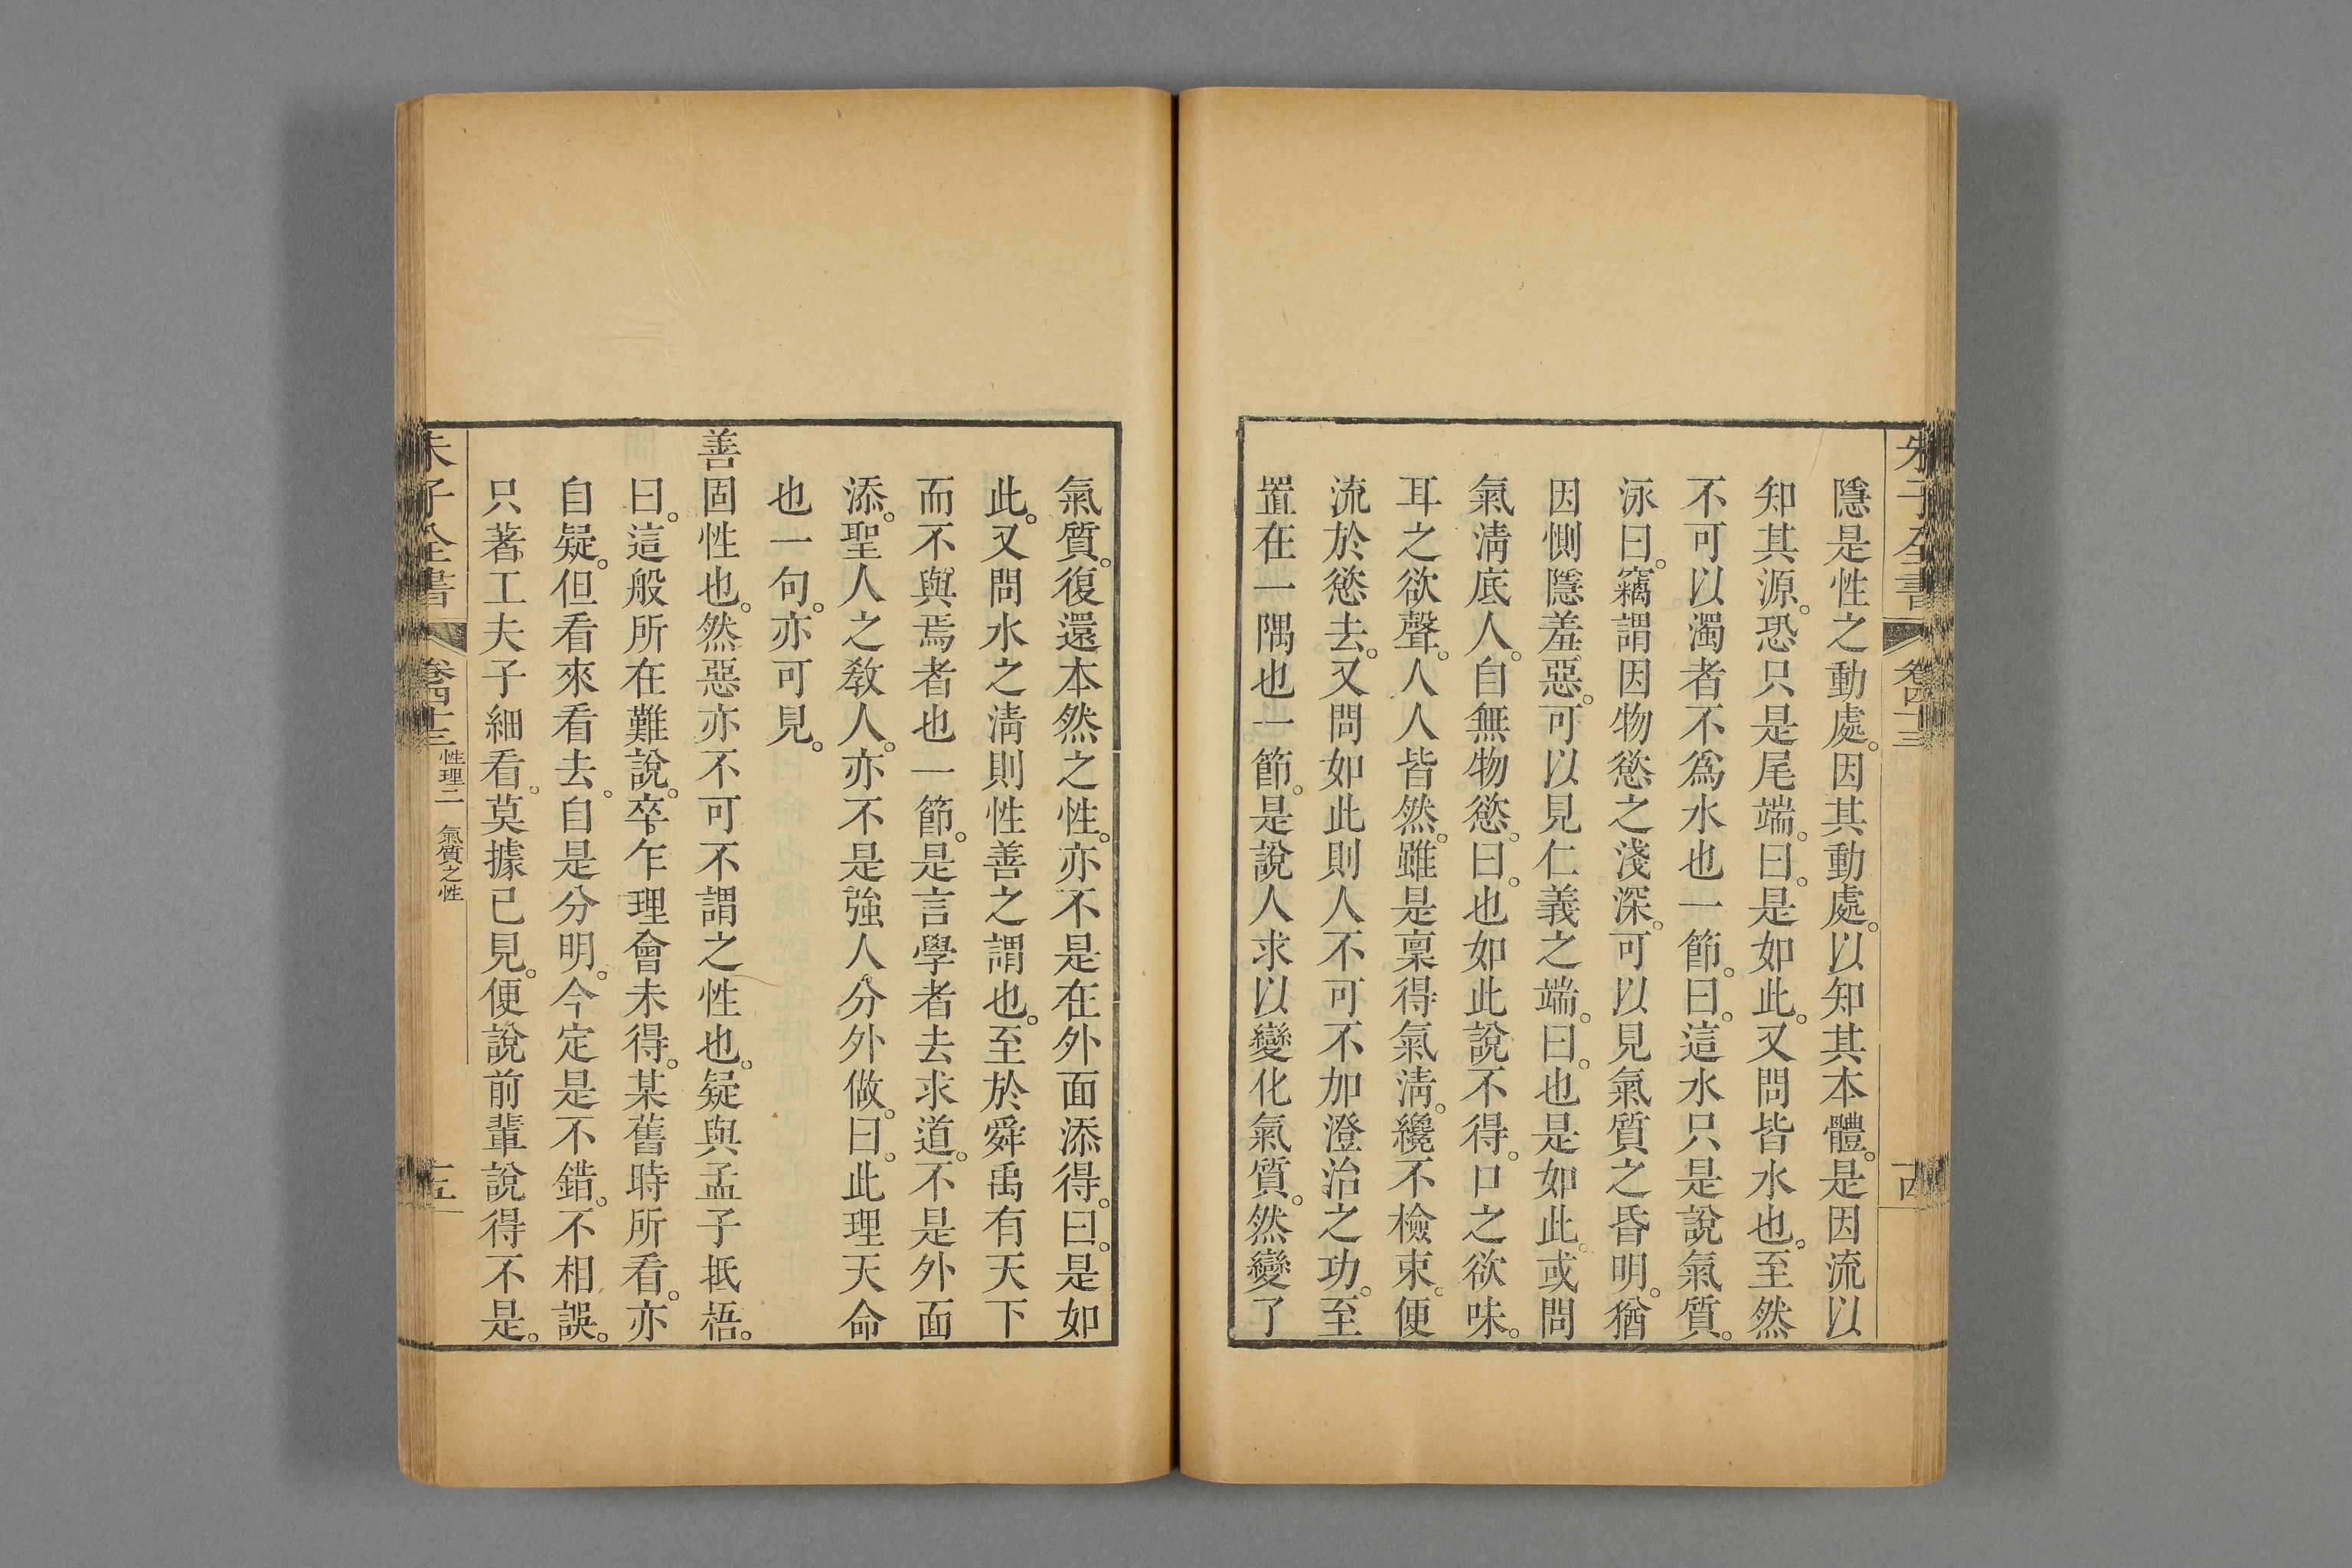 朱子全書 卷四十三 十四
隱是性之動處。因其動處。以知其本體。是因流以
知其源。恐只是尾端。曰。是如此。又問皆水也。至然
不可以濁者不爲水也一節。曰。這水只是說氣質。
泳曰。竊謂因物慾之淺深。可以見氣質之昏明。猶
因惻隱羞惡。可以見仁義之端。曰。也是如此。或問
氣淸底人。自無物慾。曰。也如此說不得。口之欲味。
耳之欲聲。人人皆然。雖是稟得氣淸。纔不檢束。便
流於慾去。又問如此則人不可不加澄治之功。至
置在一隅也一節。是說人求以變化氣質。然變了
氣質。復還本然之性。亦不是在外面添得。曰。是如
此。又問水之淸則性善之謂也。至於舜禹有天下
而不與焉者也一節。是言學者去求道。不是外面
添。聖人之敎人。亦不是強人分外做。曰。此理天命
也一句。亦可見。
善固性也。然惡亦不可不謂之性也。疑與孟子抵梧。
曰。這般所在難說。卒乍理會未得。某舊時所看。亦
自疑。但看來看去。自是分明。今定是不錯。不相誤。
只著工夫子細看。莫據已見。便說前輩說得不是。
朱子全書 卷四十三 性理二 氣質之性 十五